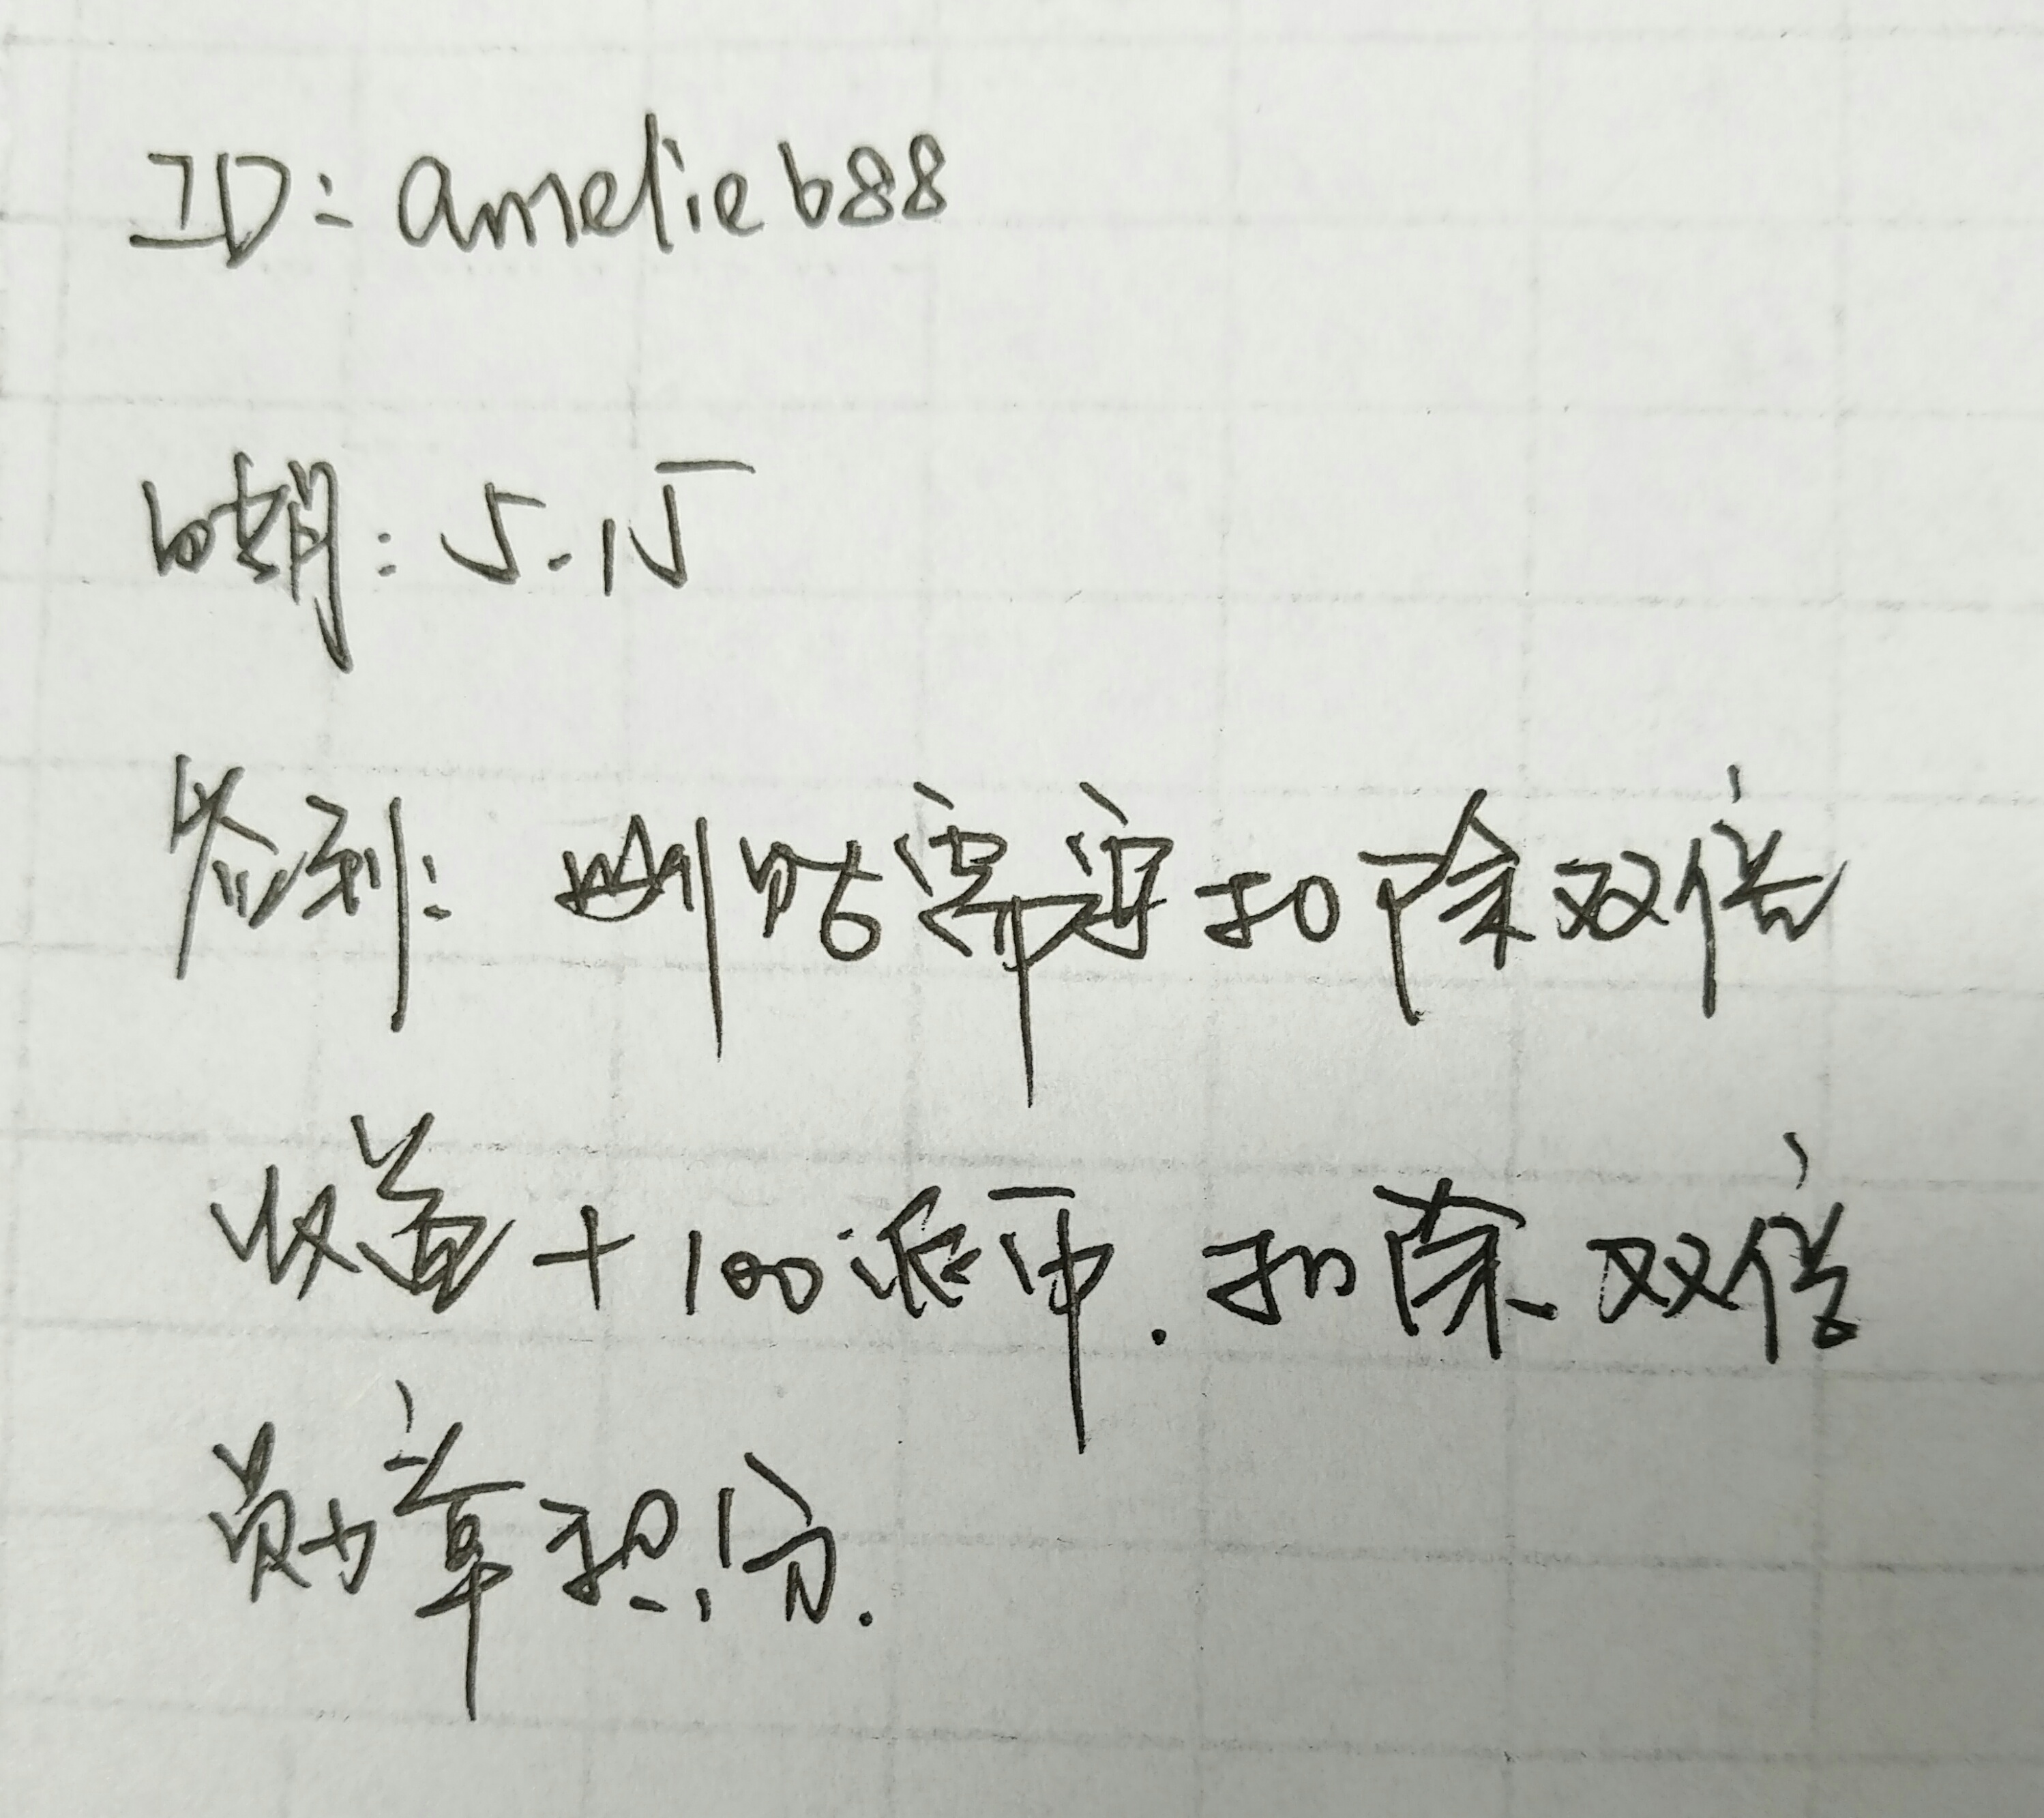 ID: amelieb88
日期: 5.15
签到: 删帖需要扣除双倍
收益+100派币.扣除双倍
勋章积分.